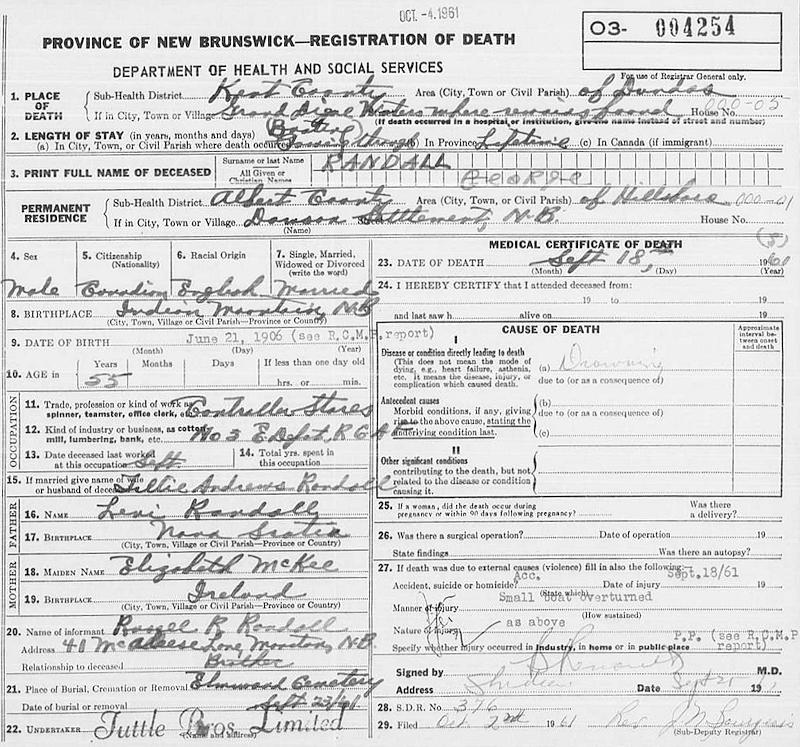 OCT -4.1961
03- 004254
PROVINCE OF NEW BRUNSWICK—REGISTRATION OF DEATH
DEPARTMENT OF HEALTH AND SOCIAL SERVICES
For use of Registrar General only.
1. PLACE OF DEATH
Sub-Health District Kent County Area (City, Town or Civil Parish) of Dundas
If in City, Town or Village Grand Digue Waters where remains found House No. 000-05
(If death occurred in a hospital or institution, give the name instead of street and number)
2. LENGTH OF STAY (in years, months and days) (Boating
(a) In City, Town, or Civil Parish where death occurred Passing through (b) In Province Lifetime (c) In Canada (if immigrant)
3. PRINT FULL NAME OF DECEASED
Surname or last Name RANDALL
All Given or Christian Names GEORGE
PERMANENT RESIDENCE
Sub-Health District Albert County Area (City, Town or Civil Parish) of Hillsboro 000-01
If in City, Town or Village Dawson Settlement, N.B. House No.
(Name)
4. Sex 5. Citizenship (Nationality) 6. Racial Origin 7. Single, Married, Widowed or Divorced (write the word)
Male Canadian English Married
8. BIRTHPLACE Indian Mountain, N.B.
(City, Town, Village or Civil Parish—Province or Country)
9. DATE OF BIRTH June 21, 1906 (see R.C.M.P. report)
(Month) (Day) (Year)
10. AGE in Years Months Days If less than one day old
55 hrs. or min.
OCCUPATION
11. Trade, profession or kind of work as spinner, teamster, office clerk, etc. Controller Stores
12. Kind of industry or business, as cotton mill, lumbering, bank, etc. No 3 E Depot, R
13. Date deceased last worked at this occupation Sept. 14. Total yrs. spent in this occupation
15. If married give name of wife or husband of deceased Tillie Andrews Randall
FATHER
16. NAME Levi Randall
17. BIRTHPLACE Nova Scotia
(City, Town, Village or Civil Parish—Province or Country)
MOTHER
18. MAIDEN NAME Elizabeth McKee
19. BIRTHPLACE Ireland
(City, Town, Village or Civil Parish—Province or Country)
20. Name of informant Russell R Randall
Address 40 McAleese Lane Moncton, N.B.
Relationship to deceased Brother
21. Place of Burial, Cremation or Removal Elmwood Cemetery
Date of burial or removal Sept 23/61
22. UNDERTAKER Tuttle Bros. Limited
(Name and address)
MEDICAL CERTIFICATE OF DEATH
23. DATE OF DEATH Sept 18, 1961
(Month) (Day) (Year)
24. I HEREBY CERTIFY that I attended deceased from:
19 to 19
and last saw h alive on 19
CAUSE OF DEATH
Approximate interval between onset and death
I
Disease or condition directly leading to death
(This does not mean the mode of dying, e.g., heart failure, asthenia, etc. It means the disease, injury, or complication which caused death.
(a) Drowning
due to (or as a consequence of)
Antecedent causes
Morbid conditions, if any, giving rise to the above cause, stating the underlying condition last.
(b)
due to (or as a consequence of)
(c)
II
Other significant conditions
contributing to the death, but not related to the disease or condition causing it.
25. If a woman, did the death occur during pregnancy or within 90 days following pregnancy? Was there a delivery?
26. Was there a surgical operation? Date of operation 19
State findings Was there an autopsy?
27. If death was due to external causes (violence) fill in also the following:
Accident, suicide or homicide? Acc. Date of injury Sept.18/61 19
(State which)
Manner of injury Small boat overturned
(How sustained)
Nature of injury as above
Specify whether injury occurred in industry, in home or in public place P.P. (see R.C.M.P report)
Signed by M.D.
Address Shediac Date Sept 21 19
28. S.D.R. No. 376
29. Filed Oct. 2nd 1961 Rev. J M Bourgeois
(Sub-Deputy Registrar)